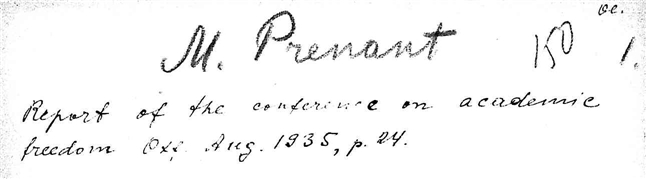 oc.
M. Prenant 150 1.
Report of the conference on academic
freedom Oxf. Aug. 1935, p. 24.